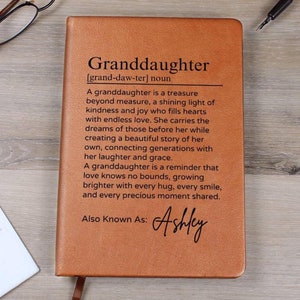 Granddaughter
[grand-daw-ter] noun
A granddaughter is a treasure
beyond measure, a shining light of
kindness and joy who fills hearts
with endless love. She carries the
dreams of those before her while
creating a beautiful story of her
own, connecting generations with
her laughter and grace.
A granddaughter is a reminder that
love knows no bounds, growing
brighter with every hug, every smile,
and every precious moment shared.
Also Known As: Ashley